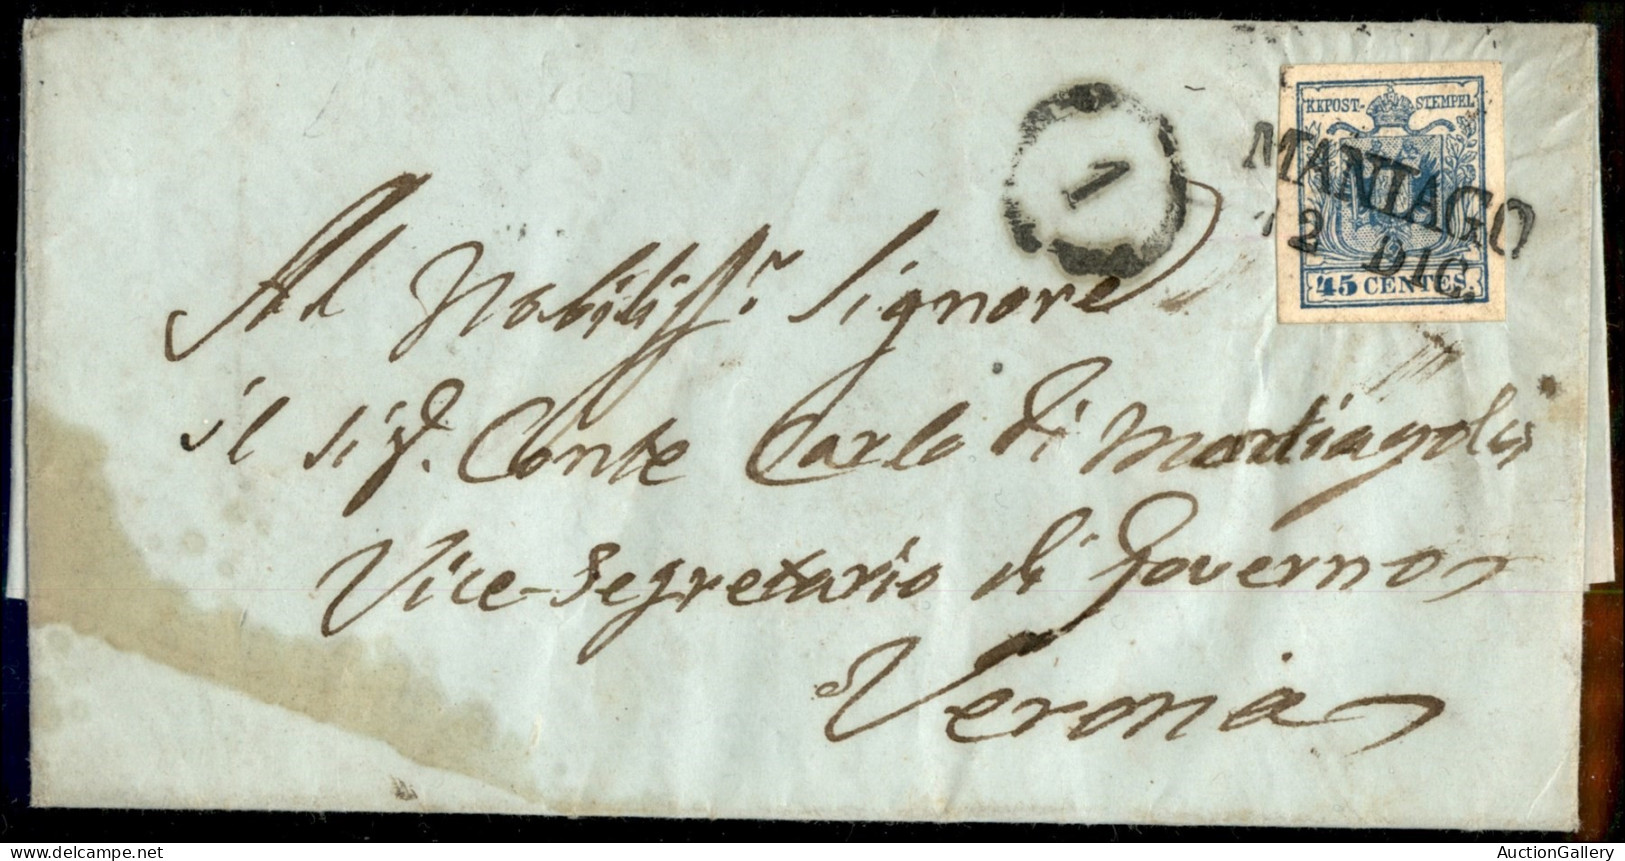 KKPOST-STEMPEL
MANIAGO
12 DIC.
45 CENTES.
1
Al Nobiliss.r Signore
il Sig.r Conte Carlo di
Vice-Segretario di Governo
Verona
AuctionGallery